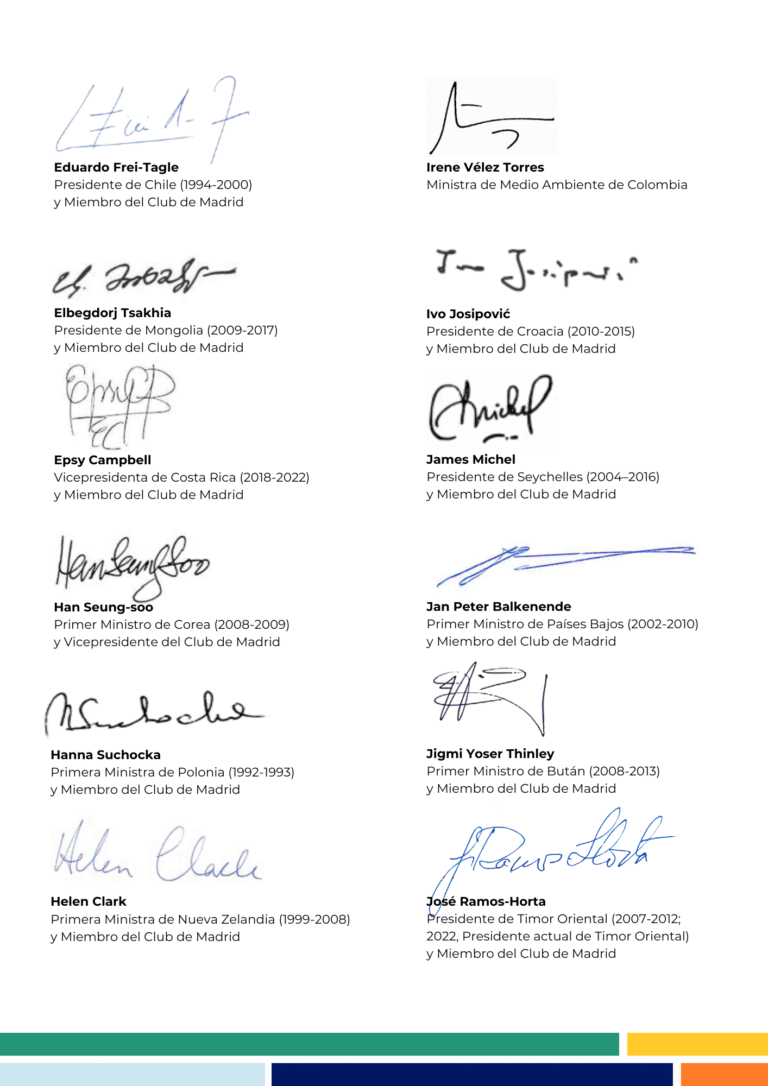 Eduardo Frei-Tagle
Presidente de Chile (1994-2000)
y Miembro del Club de Madrid
Elbegdorj Tsakhia
Presidente de Mongolia (2009-2017)
y Miembro del Club de Madrid
Epsy Campbell
Vicepresidenta de Costa Rica (2018-2022)
y Miembro del Club de Madrid
Han Seung Soo
Han Seung-soo
Primer Ministro de Corea (2008-2009)
y Vicepresidente del Club de Madrid
Hanna Suchocka
Primera Ministra de Polonia (1992-1993)
y Miembro del Club de Madrid
Helen Clark
Helen Clark
Primera Ministra de Nueva Zelandia (1999-2008)
y Miembro del Club de Madrid
Irene Vélez Torres
Ministra de Medio Ambiente de Colombia
Ivo Josipović
Presidente de Croacia (2010-2015)
y Miembro del Club de Madrid
James Michel
Presidente de Seychelles (2004–2016)
y Miembro del Club de Madrid
Jan Peter Balkenende
Primer Ministro de Países Bajos (2002-2010)
y Miembro del Club de Madrid
Jigmi Yoser Thinley
Primer Ministro de Bután (2008-2013)
y Miembro del Club de Madrid
José Ramos-Horta
Presidente de Timor Oriental (2007-2012;
2022, Presidente actual de Timor Oriental)
y Miembro del Club de Madrid